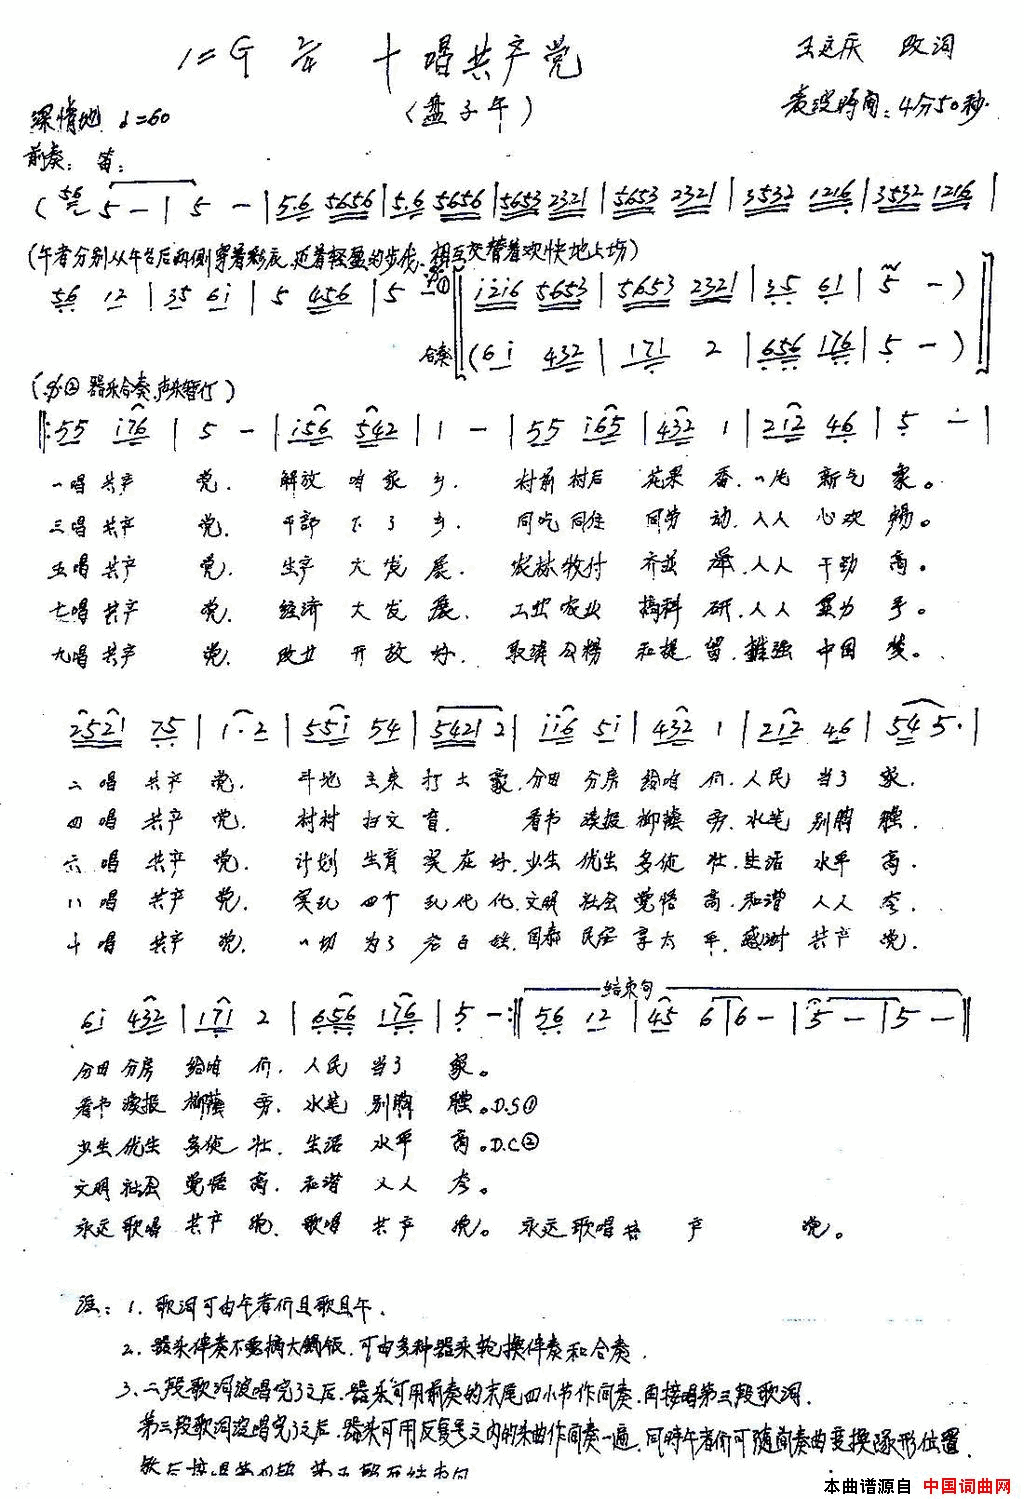 1=G 2/4 十唱共产党
王运庆 改词
(盘子午)
深情地 ♩=60
表演时间:4分50秒.
前奏: 笛:
( 56 5 - | 5 - | 5.6 5656 | 5.6 5656 | 5653 2321 | 5653 2321 | 3532 1216 | 3532 1216 |
(午者分别从午台后两侧穿着彩衣,迈着轻盈的步伐,相互交替着欢快地上场)
56 12 | 35 6i | 5 456 | 5 ① i2i6 5653 | 5653 2321 | 35 61 | 5 - )
合奏 (6i 432 | 171 2 | 656 176 | 5 - )
(② 器乐合奏,声乐暂行)
55 i76 | 5 - | i56 542 | 1 - | 55 i65 | 432 1 | 212 46 | 5 - |
一唱共产 党. 解放 咱 家 乡. 村前村后 花果 香.一片 新气 象。
三唱共产 党. 干部 下 了 乡. 同吃同住 同劳 动.人人 心欢 畅。
五唱共产 党. 生产 大 发 展. 农林牧付 齐并 举.人人 干劲 高。
七唱共产 党. 经济 大 发 展. 工业农业 搞科 研.人人 显力 手。
九唱共产 党. 改革 开 放 好. 取消公粮 和提 留. 中国
2521 75 | 1.2 | 55i 54 | 5421 2 | ii6 5i | 432 1 | 212 46 | 54 5. |
二唱 共产 党. 斗地 主来 打土豪.分田 分房 给咱 们.人民 当了 家.
四唱 共产 党. 村村 扫文盲. 看书 读报 柳荫 旁.水笔 别胸 膛.
六唱 共产 党. 计划 生育 实在好.少生 优生 多健 壮.生活 水平 高.
八唱 共产 党. 实现 四个 现代化.文明 社会 觉悟 高.和谐 人人 夸.
十唱 共产 党. 一切 为了 老百姓.国泰 民安 享太 平.感谢 共产 党.
结束句
6i 432 | 171 2 | 656 176 | 5 - :‖ 56 12 | 45 6 | 6 - | 5 - | 5 - ‖
分田分房 给咱 们. 人民 当了 家。
看书读报 柳荫 旁. 水笔 别胸 膛。D.S①
少生优生 多健 壮. 生活 水平 高。D.C②
文明社会 觉悟 高. 和谐 人人 夸。
永远歌唱 共产 党. 歌唱 共产 党。 永远歌唱共 产 党。
注: 1. 歌词可由午者们且歌且午.
2. 器乐伴奏不要搞大锅饭.可由多种器乐轮换伴奏和合奏.
3. 二段歌词演唱完了之后.器乐可用前奏的末尾四小节作间奏.再接唱第三段歌词.
第三段歌词演唱完了之后.器乐可用反复号之内的乐曲作间奏一遍.同时午者们可随间奏曲变换队形位置.
本曲谱源自 中国词曲网